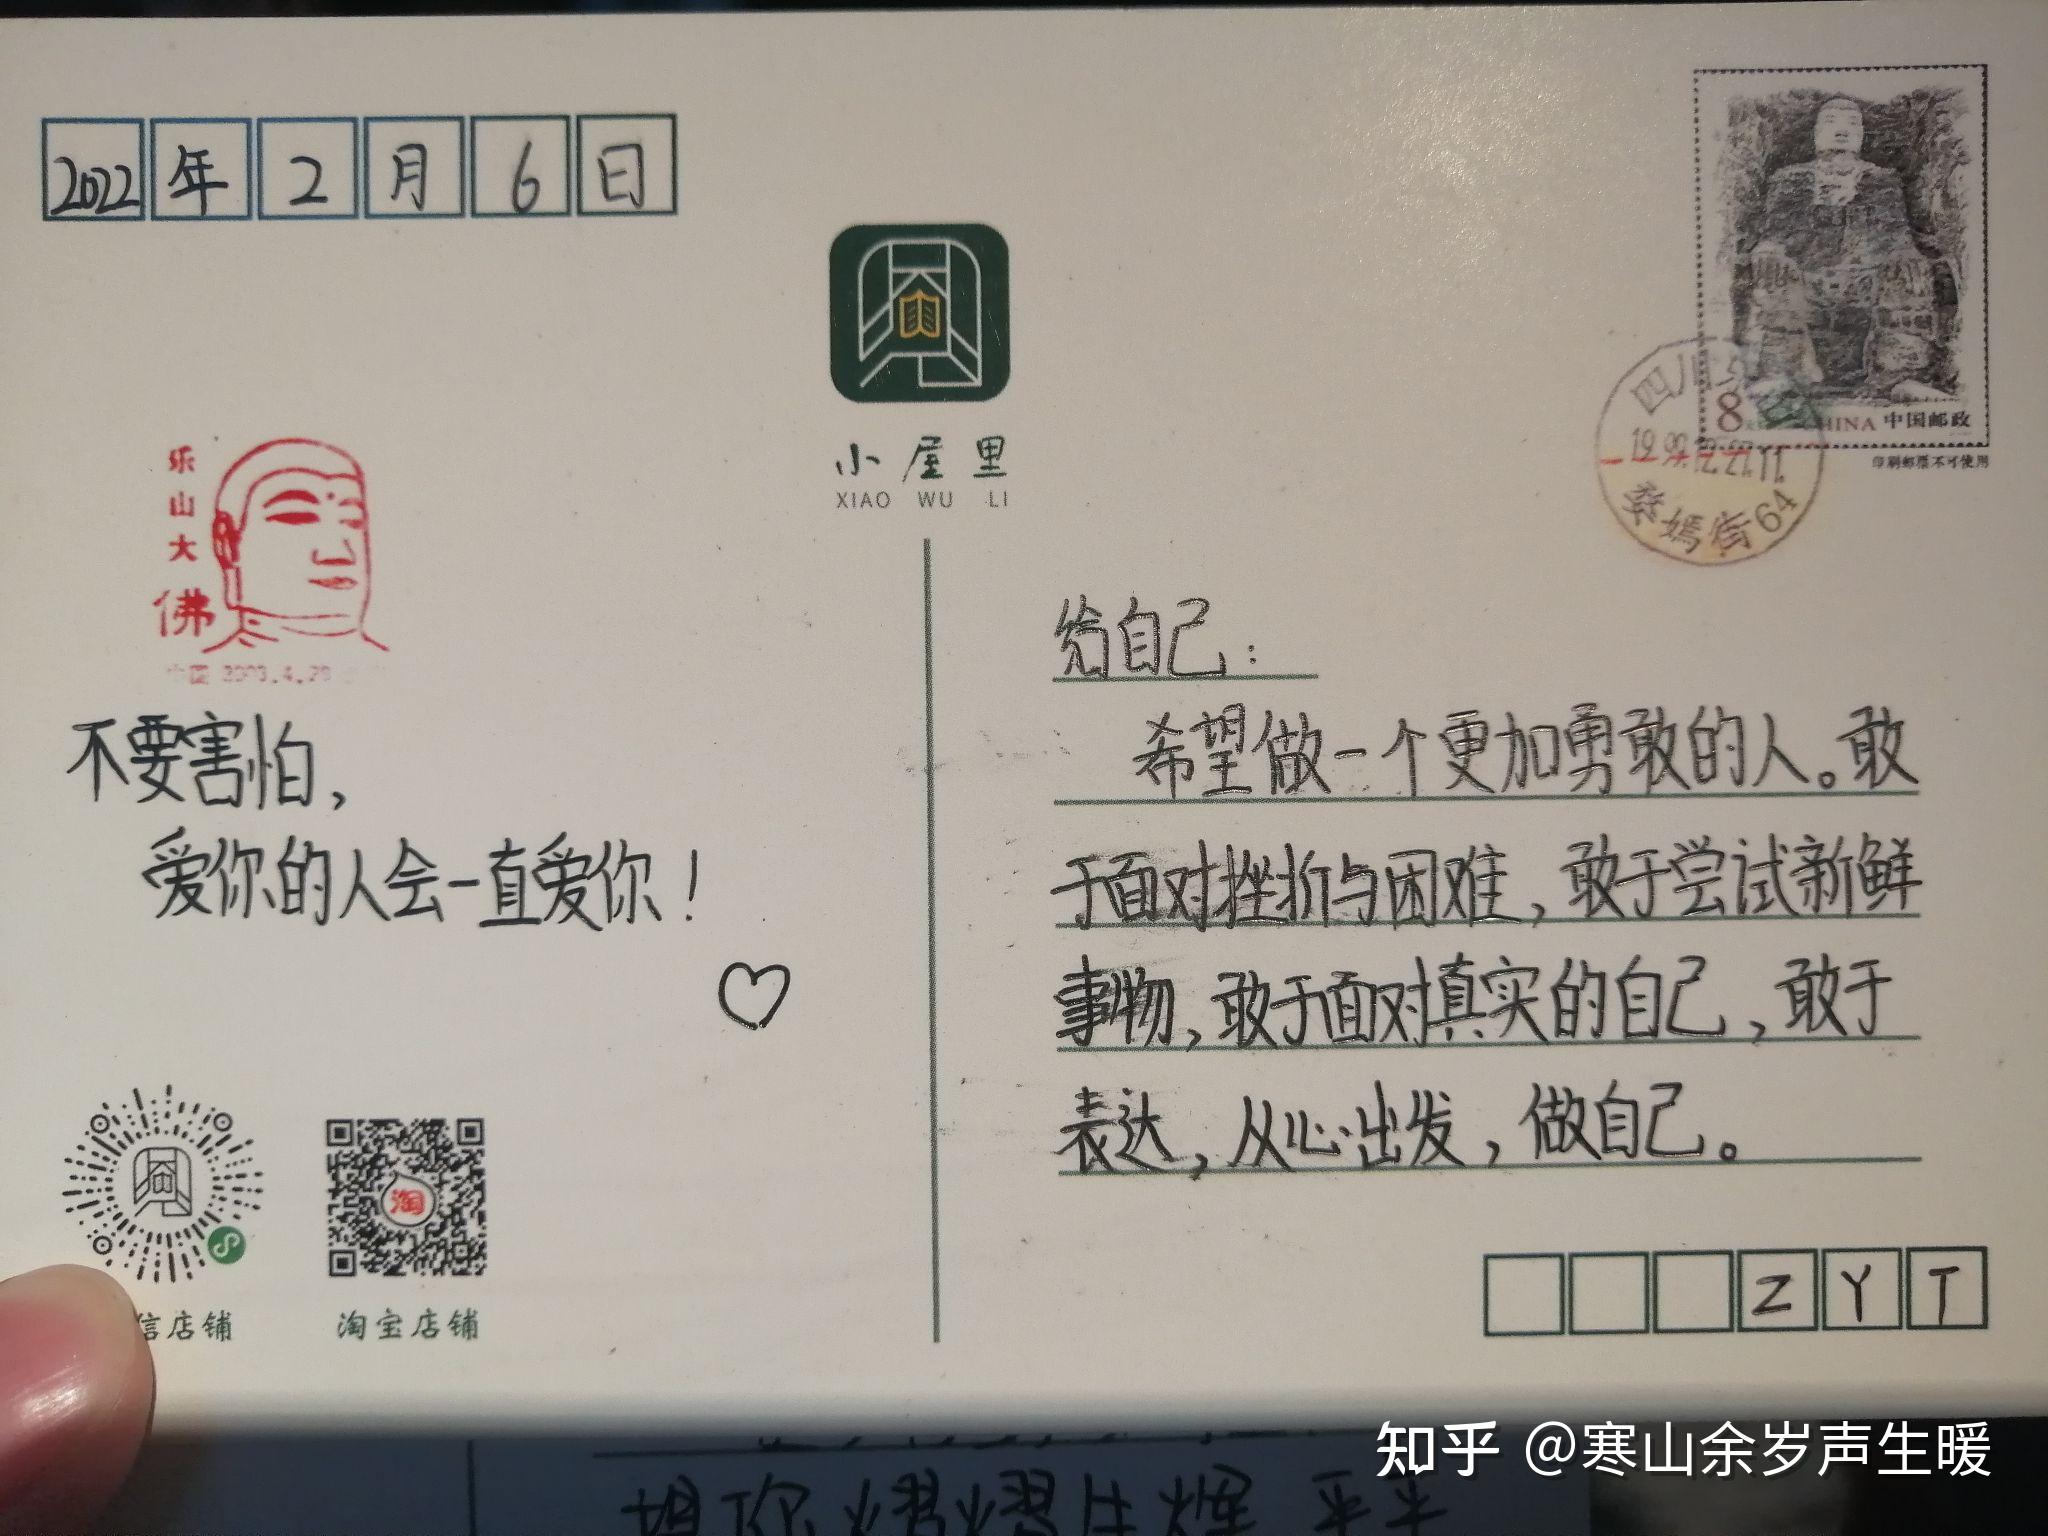 2022年2月6日
小屋里
XIAO WU LI
乐山大佛
不要害怕，
爱你的人会一直爱你！
信店铺
淘
淘宝店铺
8
CHINA 中国邮政
印刷邮票不可使用
四川
街64
给自己：
希望做一个更加勇敢的人。敢
于面对挫折与困难，敢于尝试新鲜
事物，敢于面对真实的自己，敢于
表达，从心出发，做自己。
ZYT
知乎 @寒山余岁声生暖